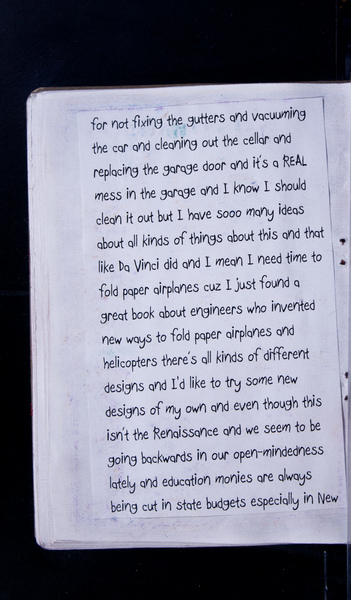 for not fixing the gutters and vacuuming
the car and cleaning out the cellar and
replacing the garage door and it's a REAL
mess in the garage and I know I should
clean it out but I have sooo many ideas
about all kinds of things about this and that
like Da Vinci did and I mean I need time to
fold paper airplanes cuz I just found a
great book about engineers who invented
new ways to fold paper airplanes and
helicopters there's all kinds of different
designs and I'd like to try some new
designs of my own and even though this
isn't the Renaissance and we seem to be
going backwards in our open-mindedness
lately and education monies are always
being cut in state budgets especially in New